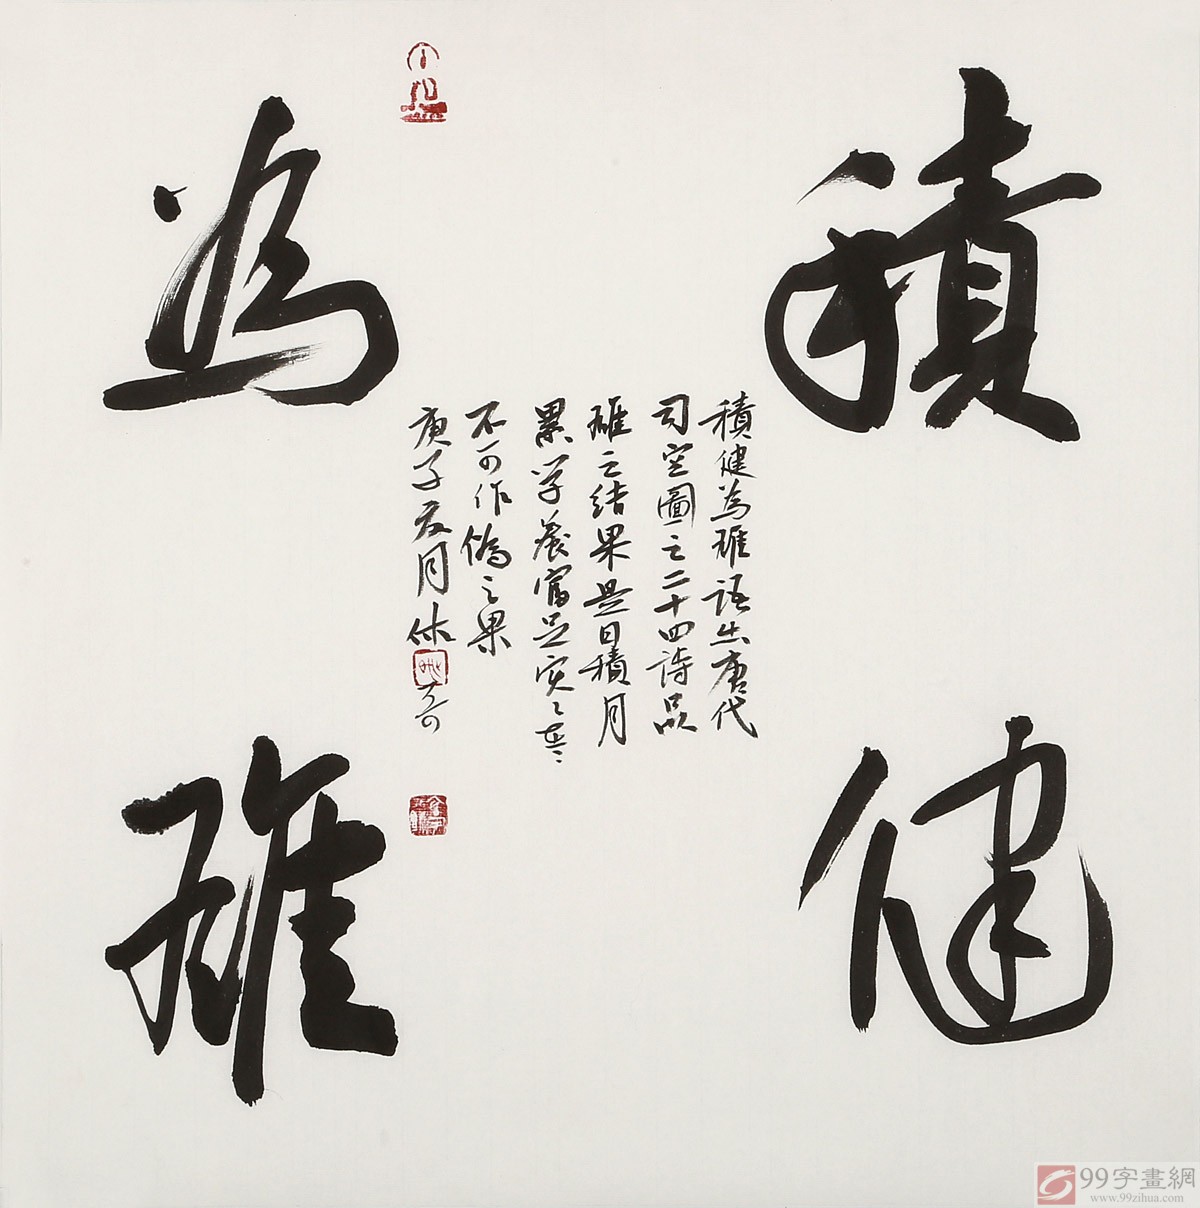 積健
為雄
積健為雄語出唐代
司空圖之二十四詩品
雄之結果是日積月
累学養富足实之
不可作偽之果
庚子夏月休
99字畫網
www.99zihua.com